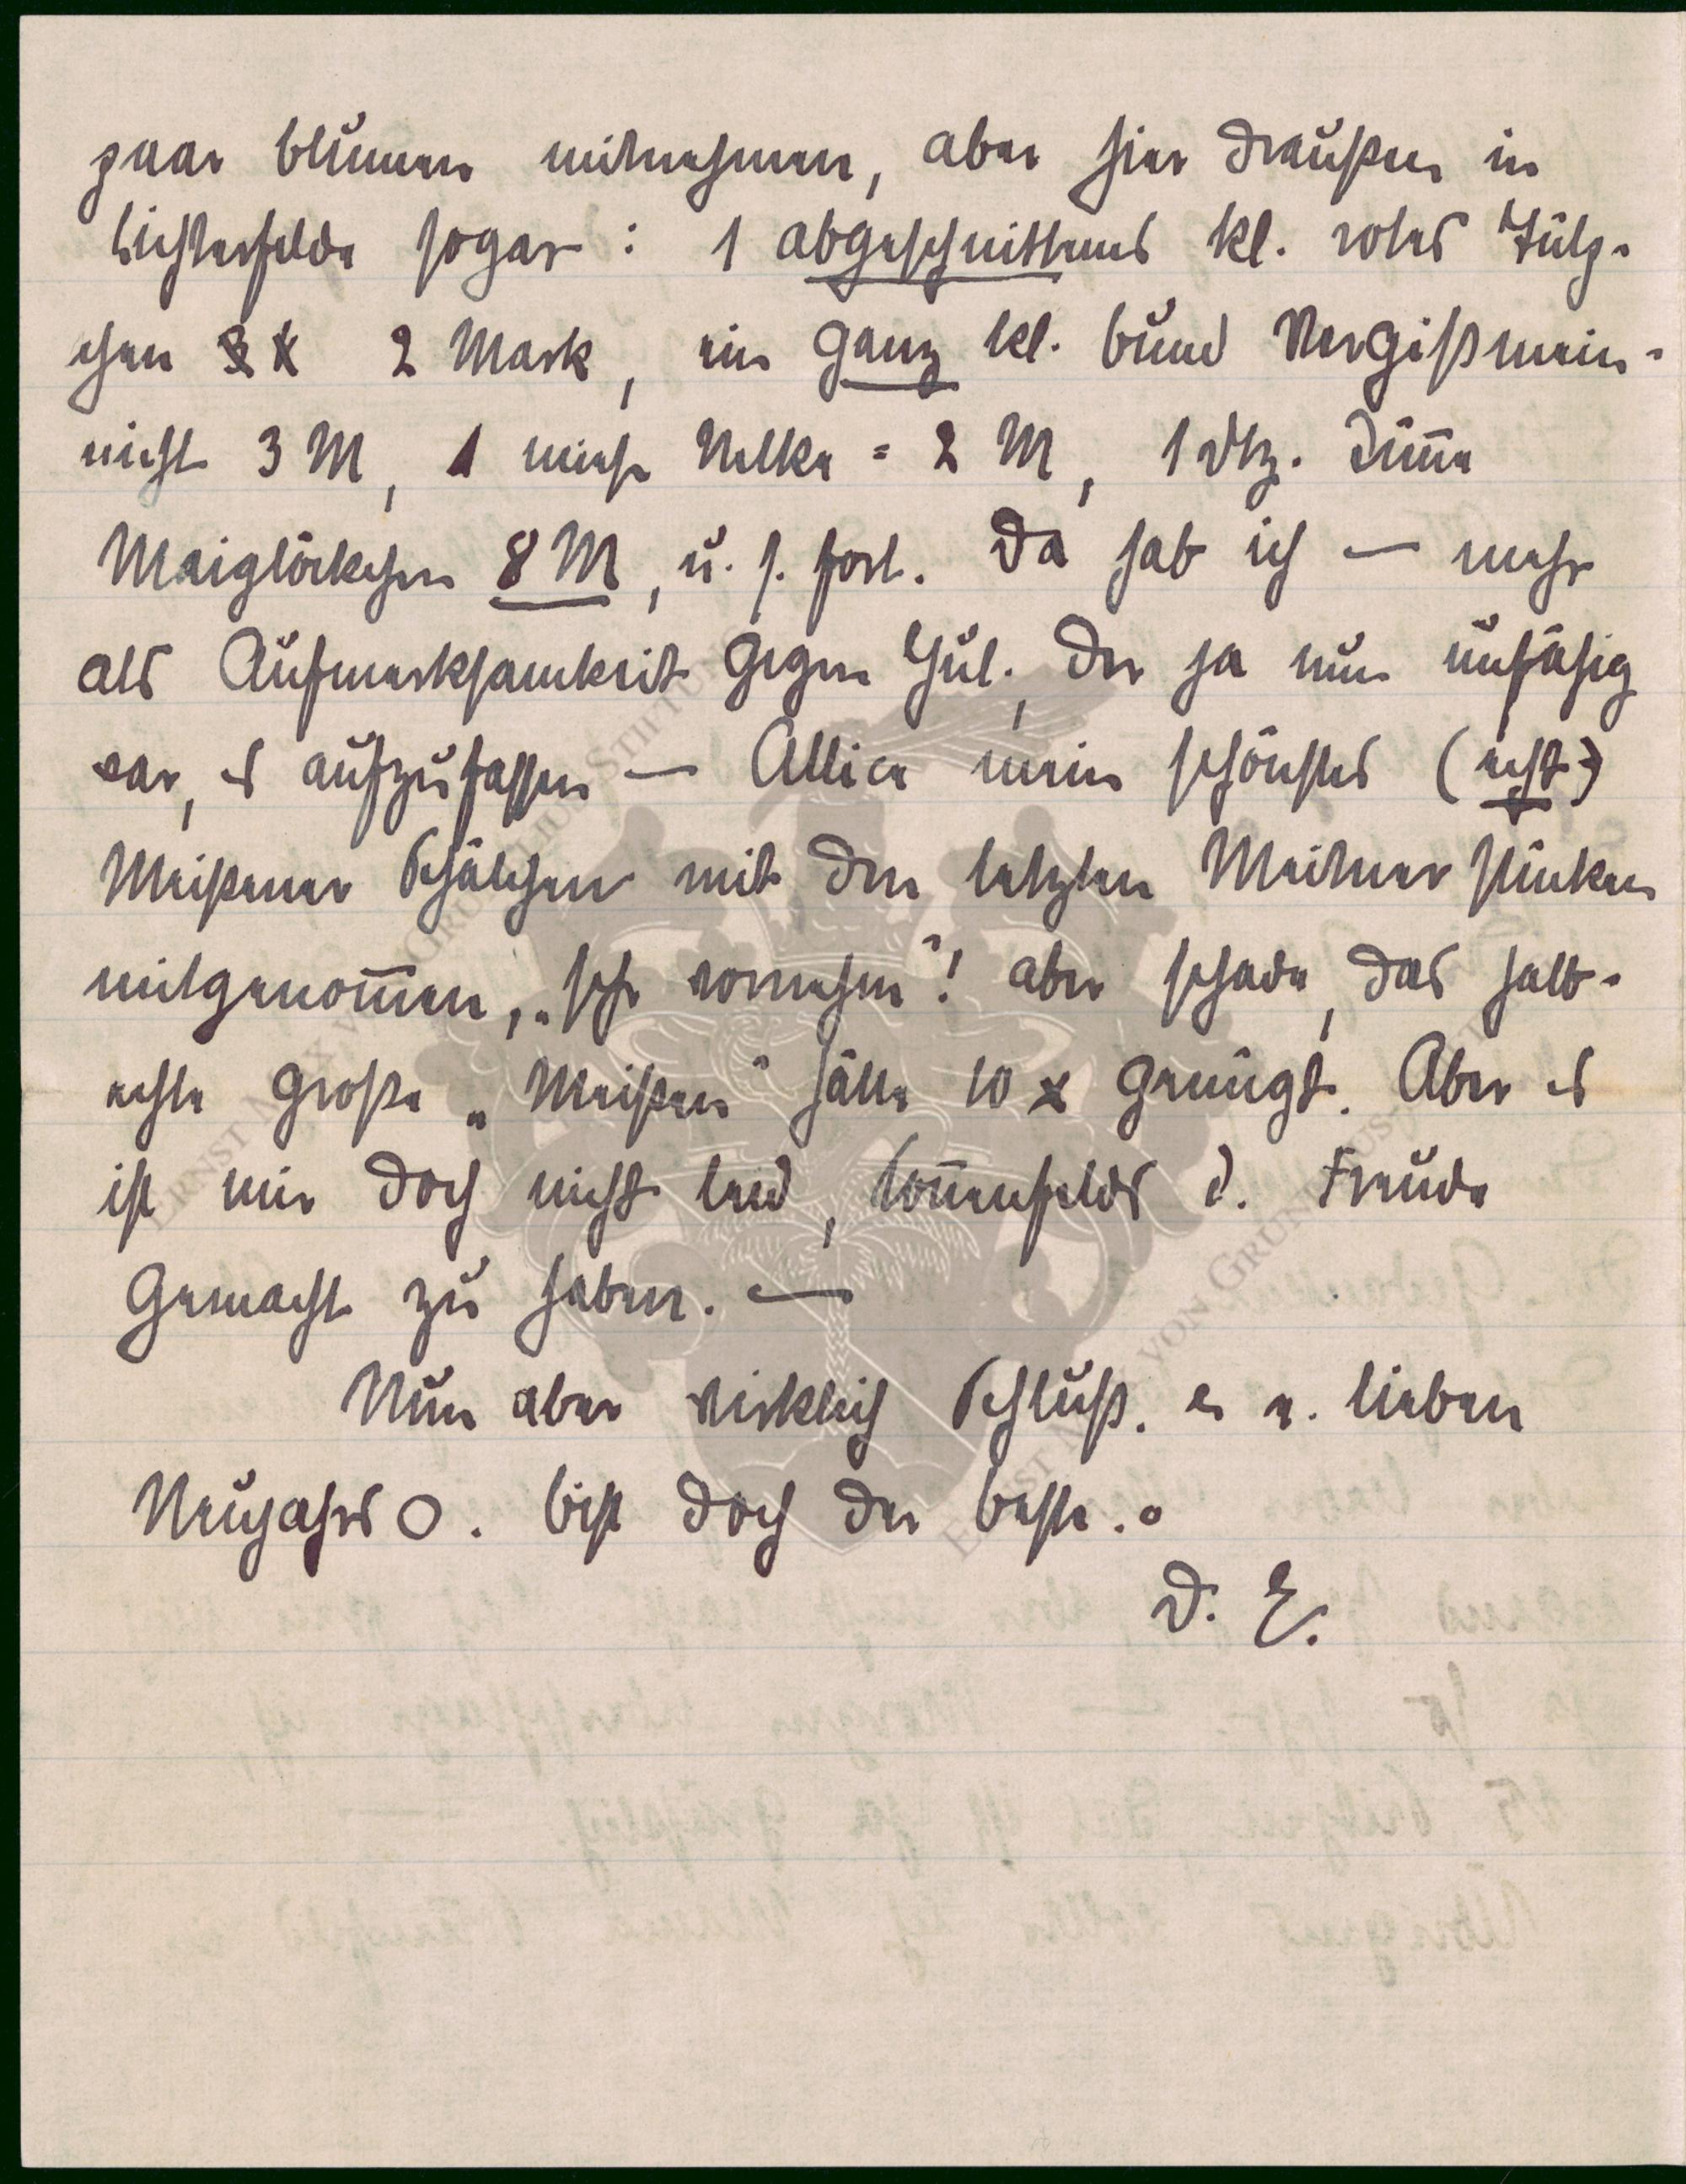 paar Blumen mitnehmen, aber hier draußen in
Lichterfelde sogar : 1 abgeschnittenes kl. rotes Tülp-
chen 2 Mark, ein ganz kl. Bund Vergißmein-
nicht 3 M, 1 miese Nelke = 2 M, 1 Dtz. dünne
Maiglöckchen 8 M, u. s. fort. Da hab ich — mehr
als Aufmerksamkeit gegen Jul., der ja nun unfähig
war, es aufzufassen — Allice mein schönstes (echt)
Meißener Schälchen mit den letzten
mitgenommen, „sehr vornehm"! aber schade, das halb-
echte große „Meißen" hätte 10 x genügt. Aber es
ist mir doch nicht leid, Sonnenfelds d. Freude
gemacht zu haben. —
Nun aber wirklich Schluß. e. lieben
Neujahrs O. bist doch der beste. o
D. E.
ERNST MAX VON GRUNELIUS-STIFTUNG
ERNST MAX VON GRUNELIUS-STIFTUNG